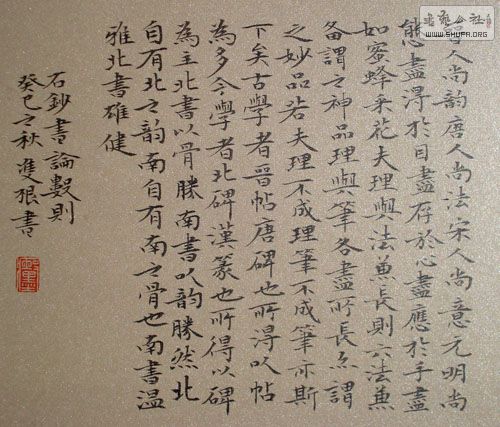 晉人尚韵唐人尚法宋人尚意元明尚
態盡淂於目盡存於心盡應於手盡
如蜜蜂采花夫理與法兼長則六法兼
備謂之神品理與筆各盡所長亦謂
之妙品若夫理不成理筆不成筆亦斯
下矣古學者晉帖唐碑也所得以帖
為多今學者北碑漢篆也所得以碑
為主北書以骨勝南書以韵勝然北
自有北之韵南自有南之骨也南書温
雅北書雄健
石鈔書論數則
癸巳之秋雙書
公社
WWW.SHUFA.ORG